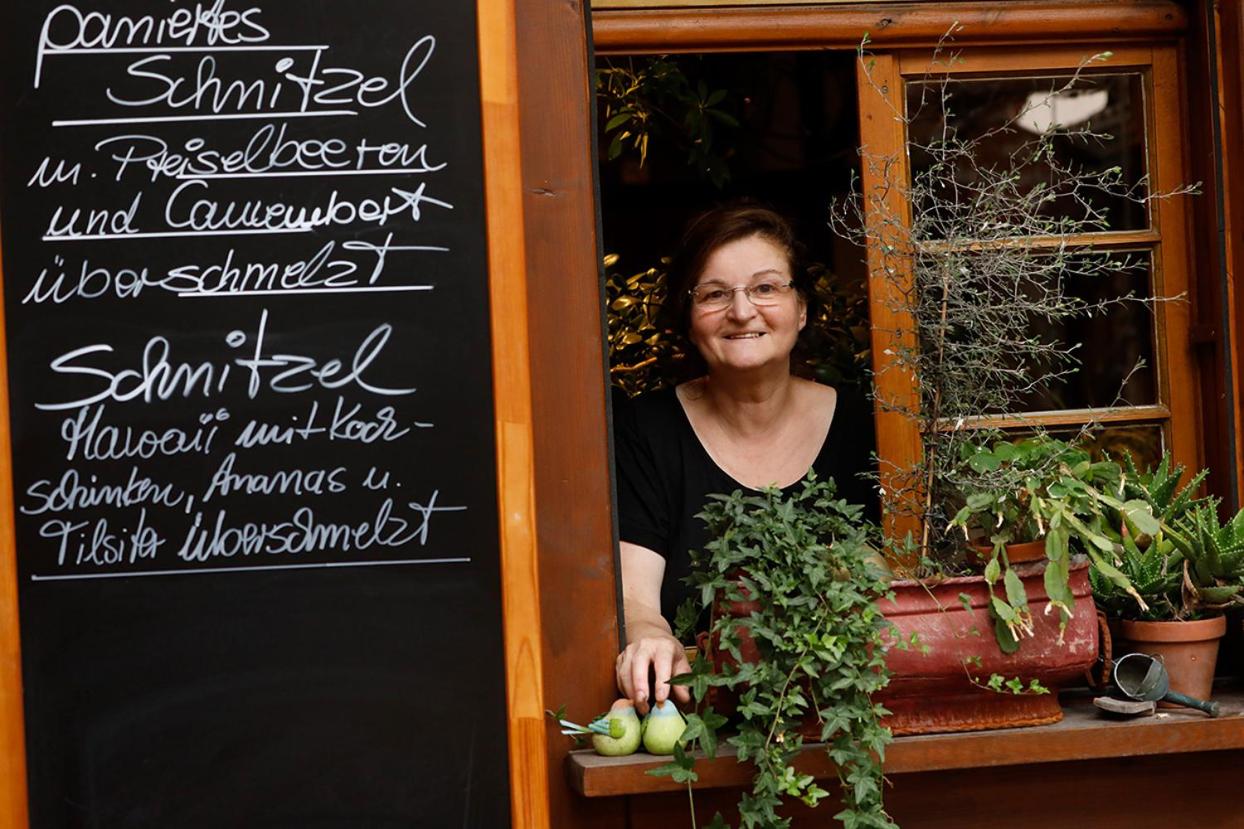 paniertes
Schnitzel
m. Preiselbeeren
und Camembert
überschmelzt
Schnitzel
Hawaii mit Koch-
schinken, Ananas u.
Tilsiter überschmelzt